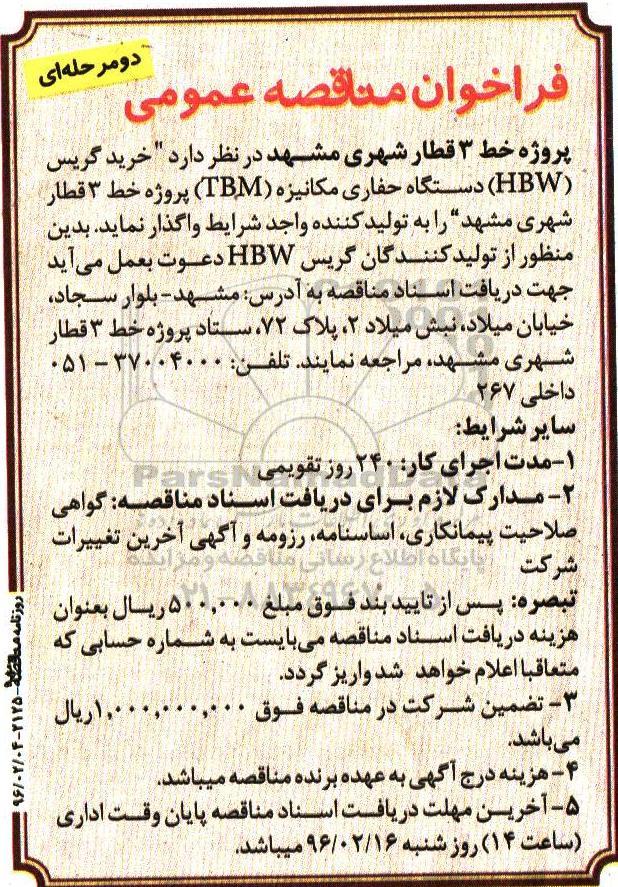 دومرحله‌ای
فراخوان مناقصه عمومی
پروژه خط ۳ قطار شهری مشهد در نظر دارد "خرید گریس
(HBW) دستگاه حفاری مکانیزه (TBM) پروژه خط ۳ قطار
شهری مشهد" را به تولیدکننده واجد شرایط واگذار نماید. بدین
منظور از تولیدکنندگان گریس HBW دعوت بعمل می‌آید
جهت دریافت اسناد مناقصه به آدرس: مشهد - بلوار سجاد،
خیابان میلاد، نبش میلاد ۲، پلاک ۷۲، ستاد پروژه خط ۳ قطار
شهری مشهد، مراجعه نمایند. تلفن: ۳۷۰۰۴۰۰۰ - ۰۵۱
داخلی ۲۶۷
سایر شرایط:
۱- مدت اجرای کار: ۲۴۰ روز تقویمی
ParsNamadData
۲- مدارک لازم برای دریافت اسناد مناقصه: گواهی
صلاحیت پیمانکاری، اساسنامه، رزومه و آگهی آخرین تغییرات
شرکت
پایگاه اطلاع رسانی مناقصه و مزایده
تبصره: پس از تایید بند فوق مبلغ ۵۰۰,۰۰۰ ریال بعنوان
۰۲۱-۸۸۳۴۹۶۷۰-۵
هزینه دریافت اسناد مناقصه می‌بایست به شماره حسابی که
متعاقبا اعلام خواهد شد واریز گردد.
۳- تضمین شرکت در مناقصه فوق ۱,۰۰۰,۰۰۰,۰۰۰ ریال
می‌باشد.
۴- هزینه درج آگهی به عهده برنده مناقصه میباشد.
۵- آخرین مهلت دریافت اسناد مناقصه پایان وقت اداری
(ساعت ۱۴) روز شنبه ۹۶/۰۲/۱۶ میباشد.
روزنامه مناقصه مزایده ۲۱۲۵-۹۶/۰۲/۰۴